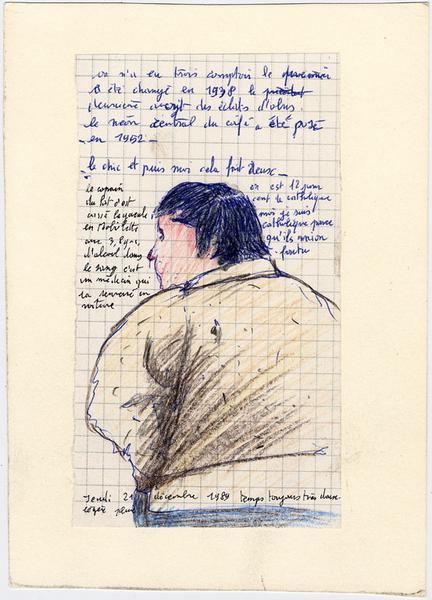 on n'a eu trois comptoir le premier
a été changé en 1938 le
deuxième avait des éclats d'obus
le néon central du café a été posé
en 1952 -
le chic et puis moi cela fait deux -
le copain
du kit s'est
cassé la gueule
en mobilette
avec 3,
d'alcool dans
le sang c'est
un médecin qui
l'a renversé en
voiture
on est 12 pour
cent de catholique
moi je suis
catholique parce
qu'ils m'ont
foutu
Jeudi 21 décembre 1989 temps toujours très doux